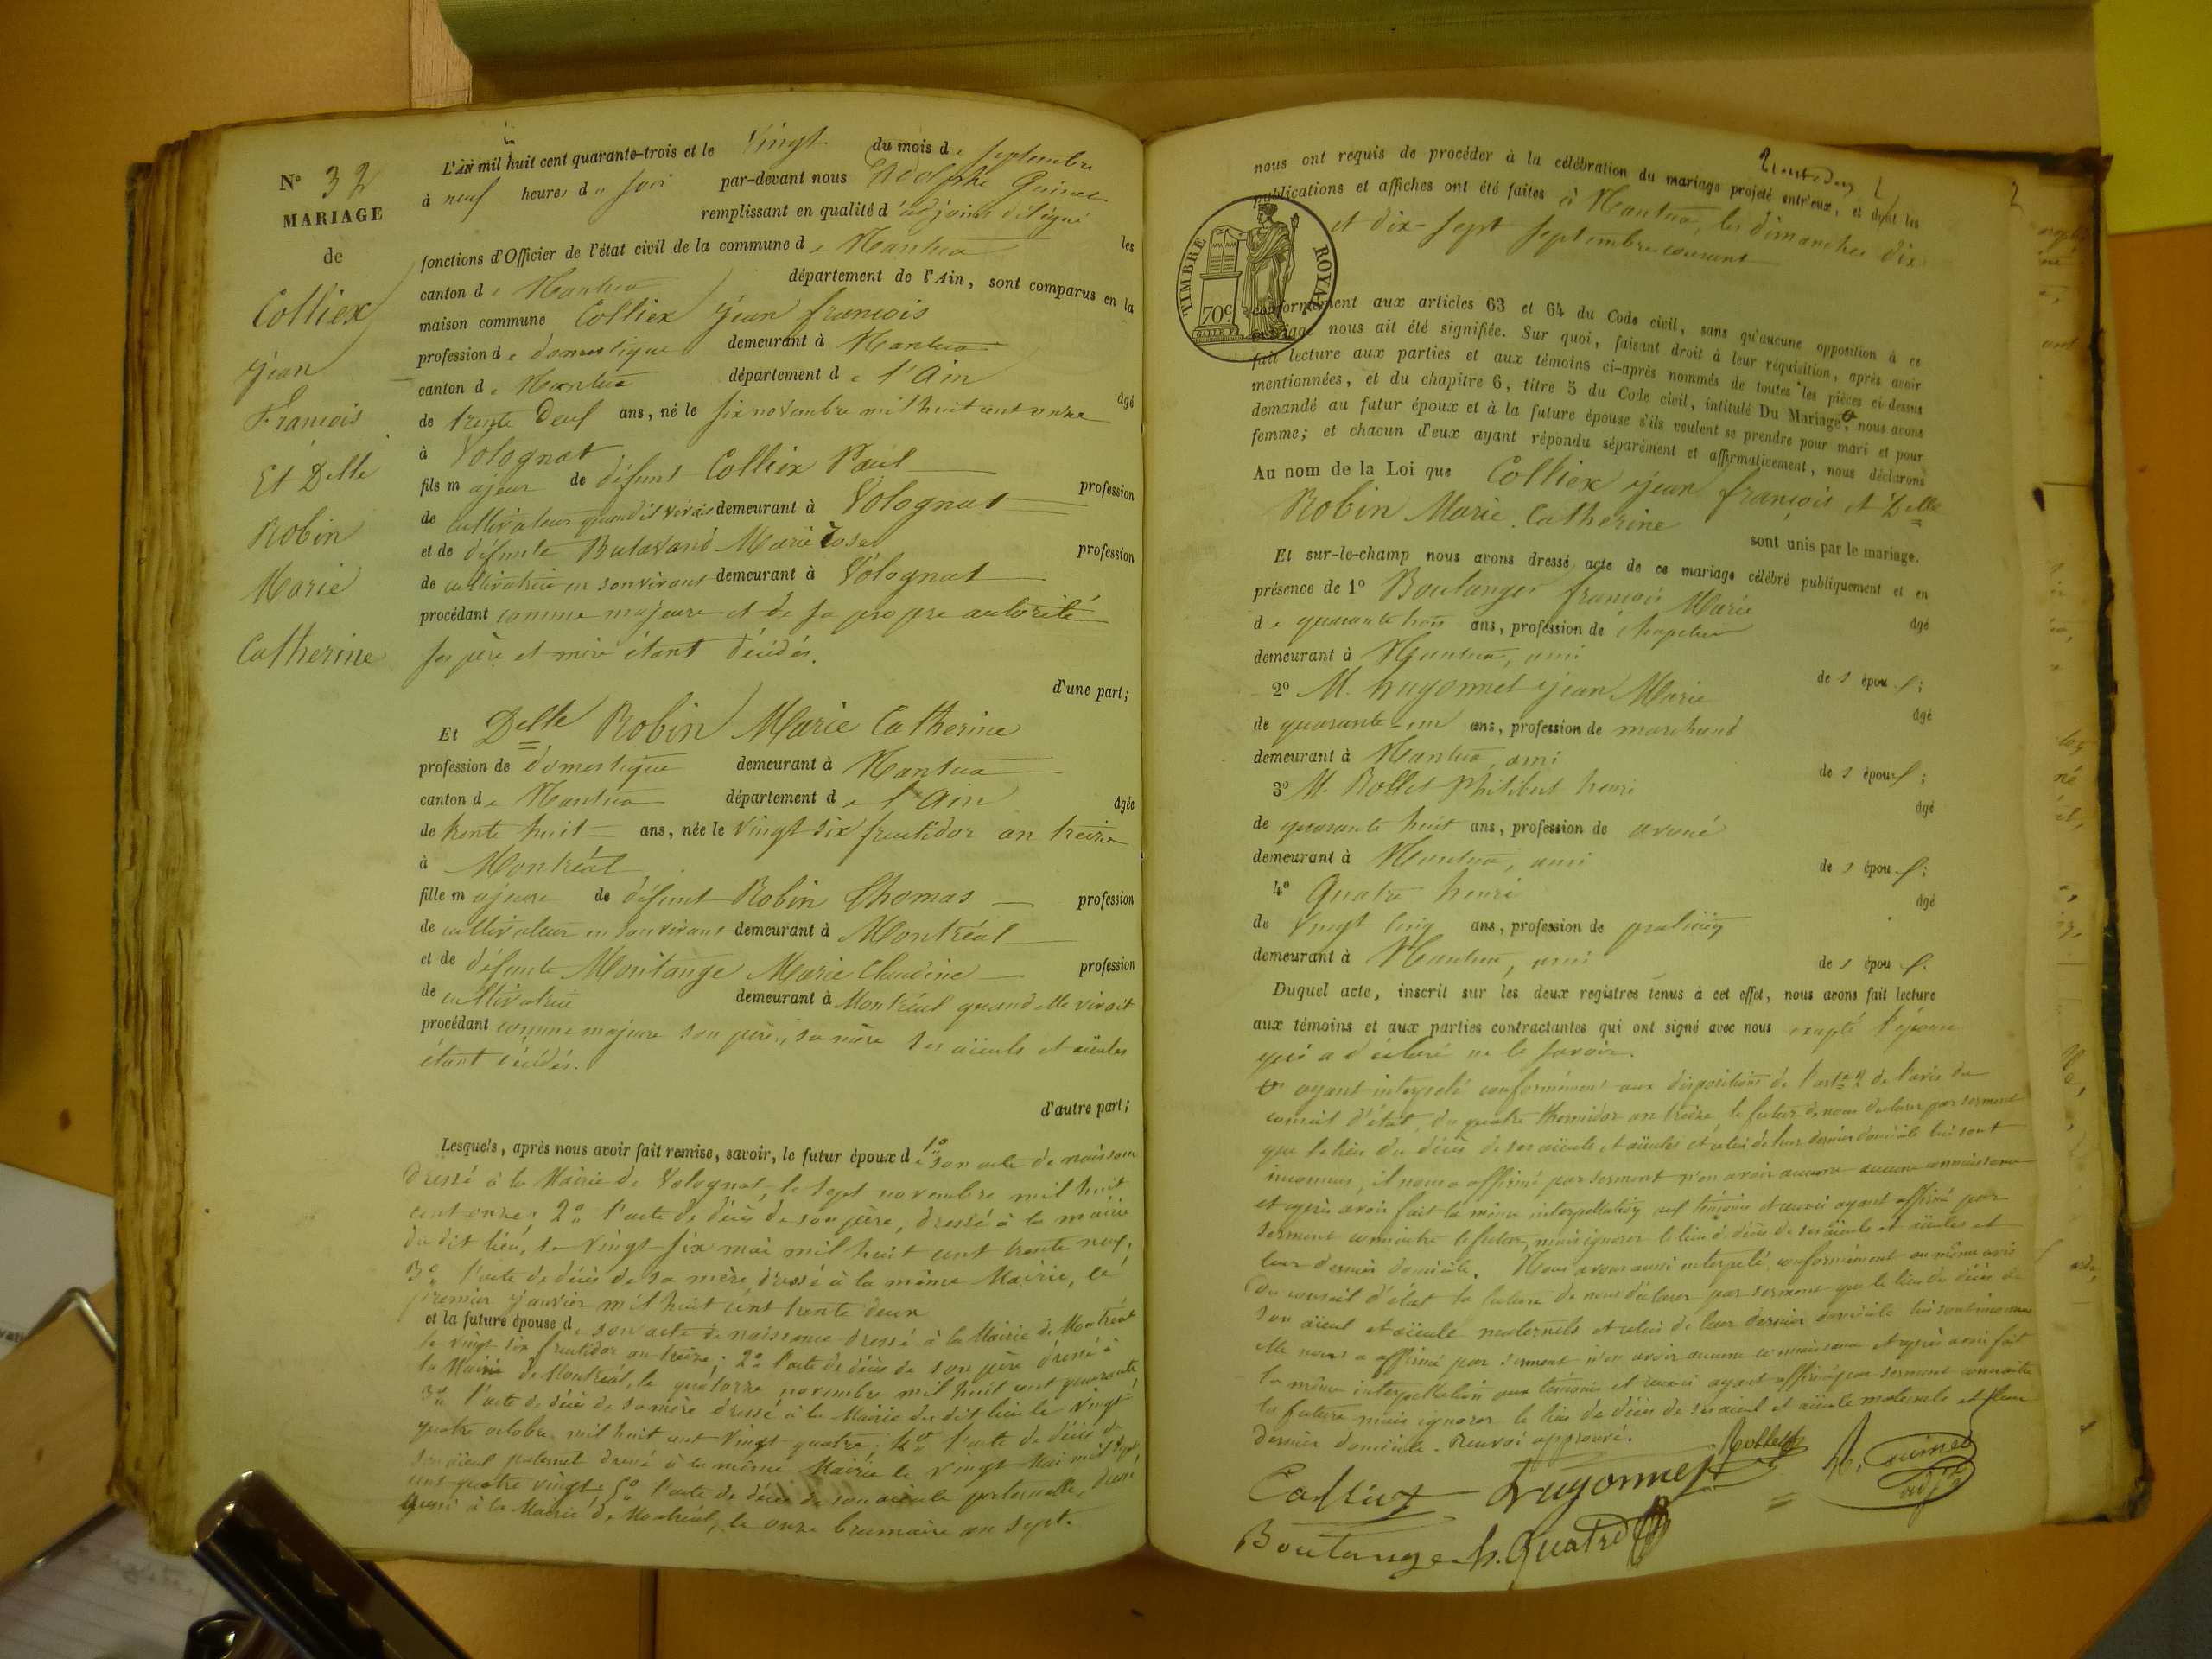 N° 32
MARIAGE
de
Colliex
Jean
François
Et Delle
Robin
Marie
Catherine
L'an mil huit cent quarante-trois et le vingt du mois de septembre
à neuf heures du soir par-devant nous Adolphe Guinet
remplissant en qualité d'adjoint délégué les
fonctions d'Officier de l'état civil de la commune de Nantua
canton de Nantua département de l'Ain, sont comparus en la
maison commune Colliex Jean françois
profession de domestique demeurant à Nantua
canton de Nantua département de l'Ain âgé
de trente deux ans, né le six novembre mil huit cent onze
à Volognat
fils majeur de défunt Colliex Paul profession
de cultivateur quand il vivait demeurant à Volognat
et de défunte Butavand Marie Rose profession
de cultivatrice en son vivant demeurant à Volognat
procédant comme majeure et de sa propre autorité
ses père et mère étant décédés.
d'une part;
Et Delle Robin Marie Catherine
profession de domestique demeurant à Nantua
canton de Nantua département de l'Ain âgée
de trente huit ans, née le vingt six fructidor an treize
à Montréal
fille majeure de défunt Robin Thomas profession
de cultivateur en son vivant demeurant à Montréal
et de défunte Montange Marie Claudine profession
de cultivatrice demeurant à Montréal quand elle vivait
procédant comme majeure son père, sa mère ses aïeuls et aïeules
étant décédés.
d'autre part;
Lesquels, après nous avoir fait remise, savoir, le futur époux de 1° son acte de naissance
dressé à la Mairie de Volognat, le sept novembre mil huit
cent onze; 2° l'acte de décès de son père, dressé à la mairie
du dit lieu, le vingt six mai mil huit cent trente neuf.
3° l'acte de décès de sa mère, dressé à la même Mairie, le
premier janvier mil huit cent trente deux
et la future épouse de son acte de naissance dressé à la Mairie de Montréal
le vingt six fructidor an treize; 2° l'acte de décès de son père dressé à
la Mairie de Montréal, le quatorze novembre mil huit cent quarante
3° l'acte de décès de sa mère dressé à la Mairie du dit lieu le vingt
quatre octobre mil huit cent vingt quatre; 4° l'acte de décès de
son aïeul paternel dressé à la même Mairie le vingt Mai mil sept
cent quatre vingt; 5° l'acte de décès de son aïeule paternelle, dressé
aussi à la Mairie de Montréal, le onze brumaire an sept.
2
nous ont requis de procéder à la célébration du mariage projeté entr'eux, et dont les
publications et affiches ont été faites à Nantua, les dimanches dix
et dix-sept septembre courant
TIMBRE ROYAL
70c
conformément aux articles 63 et 64 du Code civil, sans qu'aucune opposition à ce
mariage nous ait été signifiée. Sur quoi, faisant droit à leur réquisition, après avoir
fait lecture aux parties et aux témoins ci-après nommés de toutes les pièces ci-dessus
mentionnées, et du chapitre 6, titre 5 du Code civil, intitulé Du Mariage, nous avons
demandé au futur époux et à la future épouse s'ils veulent se prendre pour mari et pour
femme; et chacun d'eux ayant répondu séparément et affirmativement, nous déclarons
Au nom de la Loi que Colliex Jean françois et Delle
Robin Marie Catherine sont unis par le mariage.
Et sur-le-champ nous avons dressé acte de ce mariage célébré publiquement et en
présence de 1° Boulanger françois Marie âgé
de quarante trois ans, profession de chapelier
demeurant à Nantua, ami de s épou s;
2° M. hugonnet jean Marie âgé
de quarante-un ans, profession de marchand
demeurant à Nantua, ami de s épou s;
3° M. Rollet Philibert henri âgé
de quarante huit ans, profession de avoué
demeurant à Nantua, ami de s épou s;
4° Quatre henri âgé
de vingt cinq ans, profession de praticien
demeurant à Nantua, ami de s épou s.
Duquel acte, inscrit sur les deux registres tenus à cet effet, nous avons fait lecture
aux témoins et aux parties contractantes qui ont signé avec nous excepté l'épouse
qui a déclaré ne le savoir.
ayant interpelé conformément aux dispositions de l'art. 2 de l'avis du
conseil d'état, du quatre thermidor an treize, le futur de nous déclarer par serment
que le lieu du décès de ses aïeuls et aïeules et celui de leur dernier domicile lui sont
inconnus, il nous a affirmé par serment n'en avoir aucune connaissance
et après avoir fait la même interpellation aux témoins et ceux-ci ayant affirmé par
serment connaitre le futur, mais ignorer le lieu du décès de ses aïeuls et aïeules et
leur dernier domicile. Nous avons aussi interpelé, conformément au même avis
du conseil d'état la future de nous déclarer par serment que le lieu du décès de
son aïeul et aïeule maternels et celui de leur dernier domicile lui sont inconnus
elle nous a affirmé par serment n'en avoir aucune connaissance et après avoir fait
la même interpellation aux témoins et ceux-ci ayant affirmé par serment connaitre
la future mais ignorer le lieu de décès de ses aïeul et aïeule maternels et leur
dernier domicile. Renvoi approuvé.
Rollet
A. Guinet
adjt
Colliex
hugonnet
Boulanger
h. Quatre